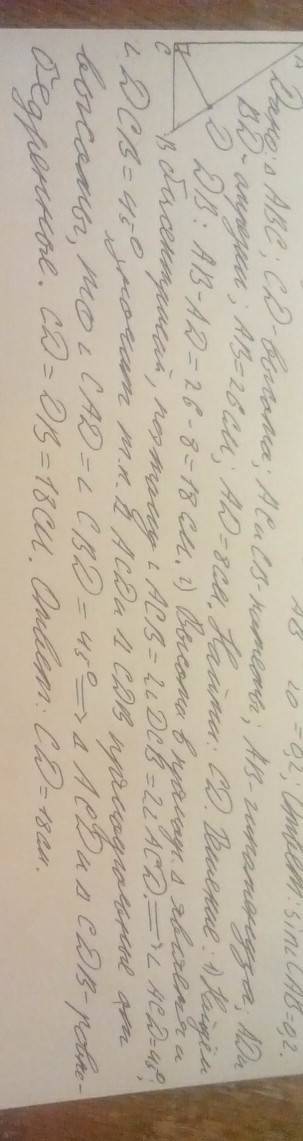 AB 10 = 82; Ответ: sin CAB = 0,2.
A
C
B
D
Дано: Δ ABC; CD - высота; AC и CB - катеты; AB - гипотенуза; AD и
BD - отрезки; AB = 26 см; AD = 8 см. Найти: CD. Решение: 1) Найдём
DB: AB - AD = 26 - 8 = 18 см. 2) Высота в прямоуг. Δ является и
биссектрисой, поэтому ∠ACB = 2∠DCB = 2∠ACD. => ∠ACD = 45°;
∠DCB = 45°, значит т.к. Δ ACD и Δ CDB прямоугольные от
высоты, то ∠CAD = ∠CBD = 45° => Δ ACD и Δ CDB - равно-
бедренные. CD = DB = 18 см. Ответ: CD = 18 см.